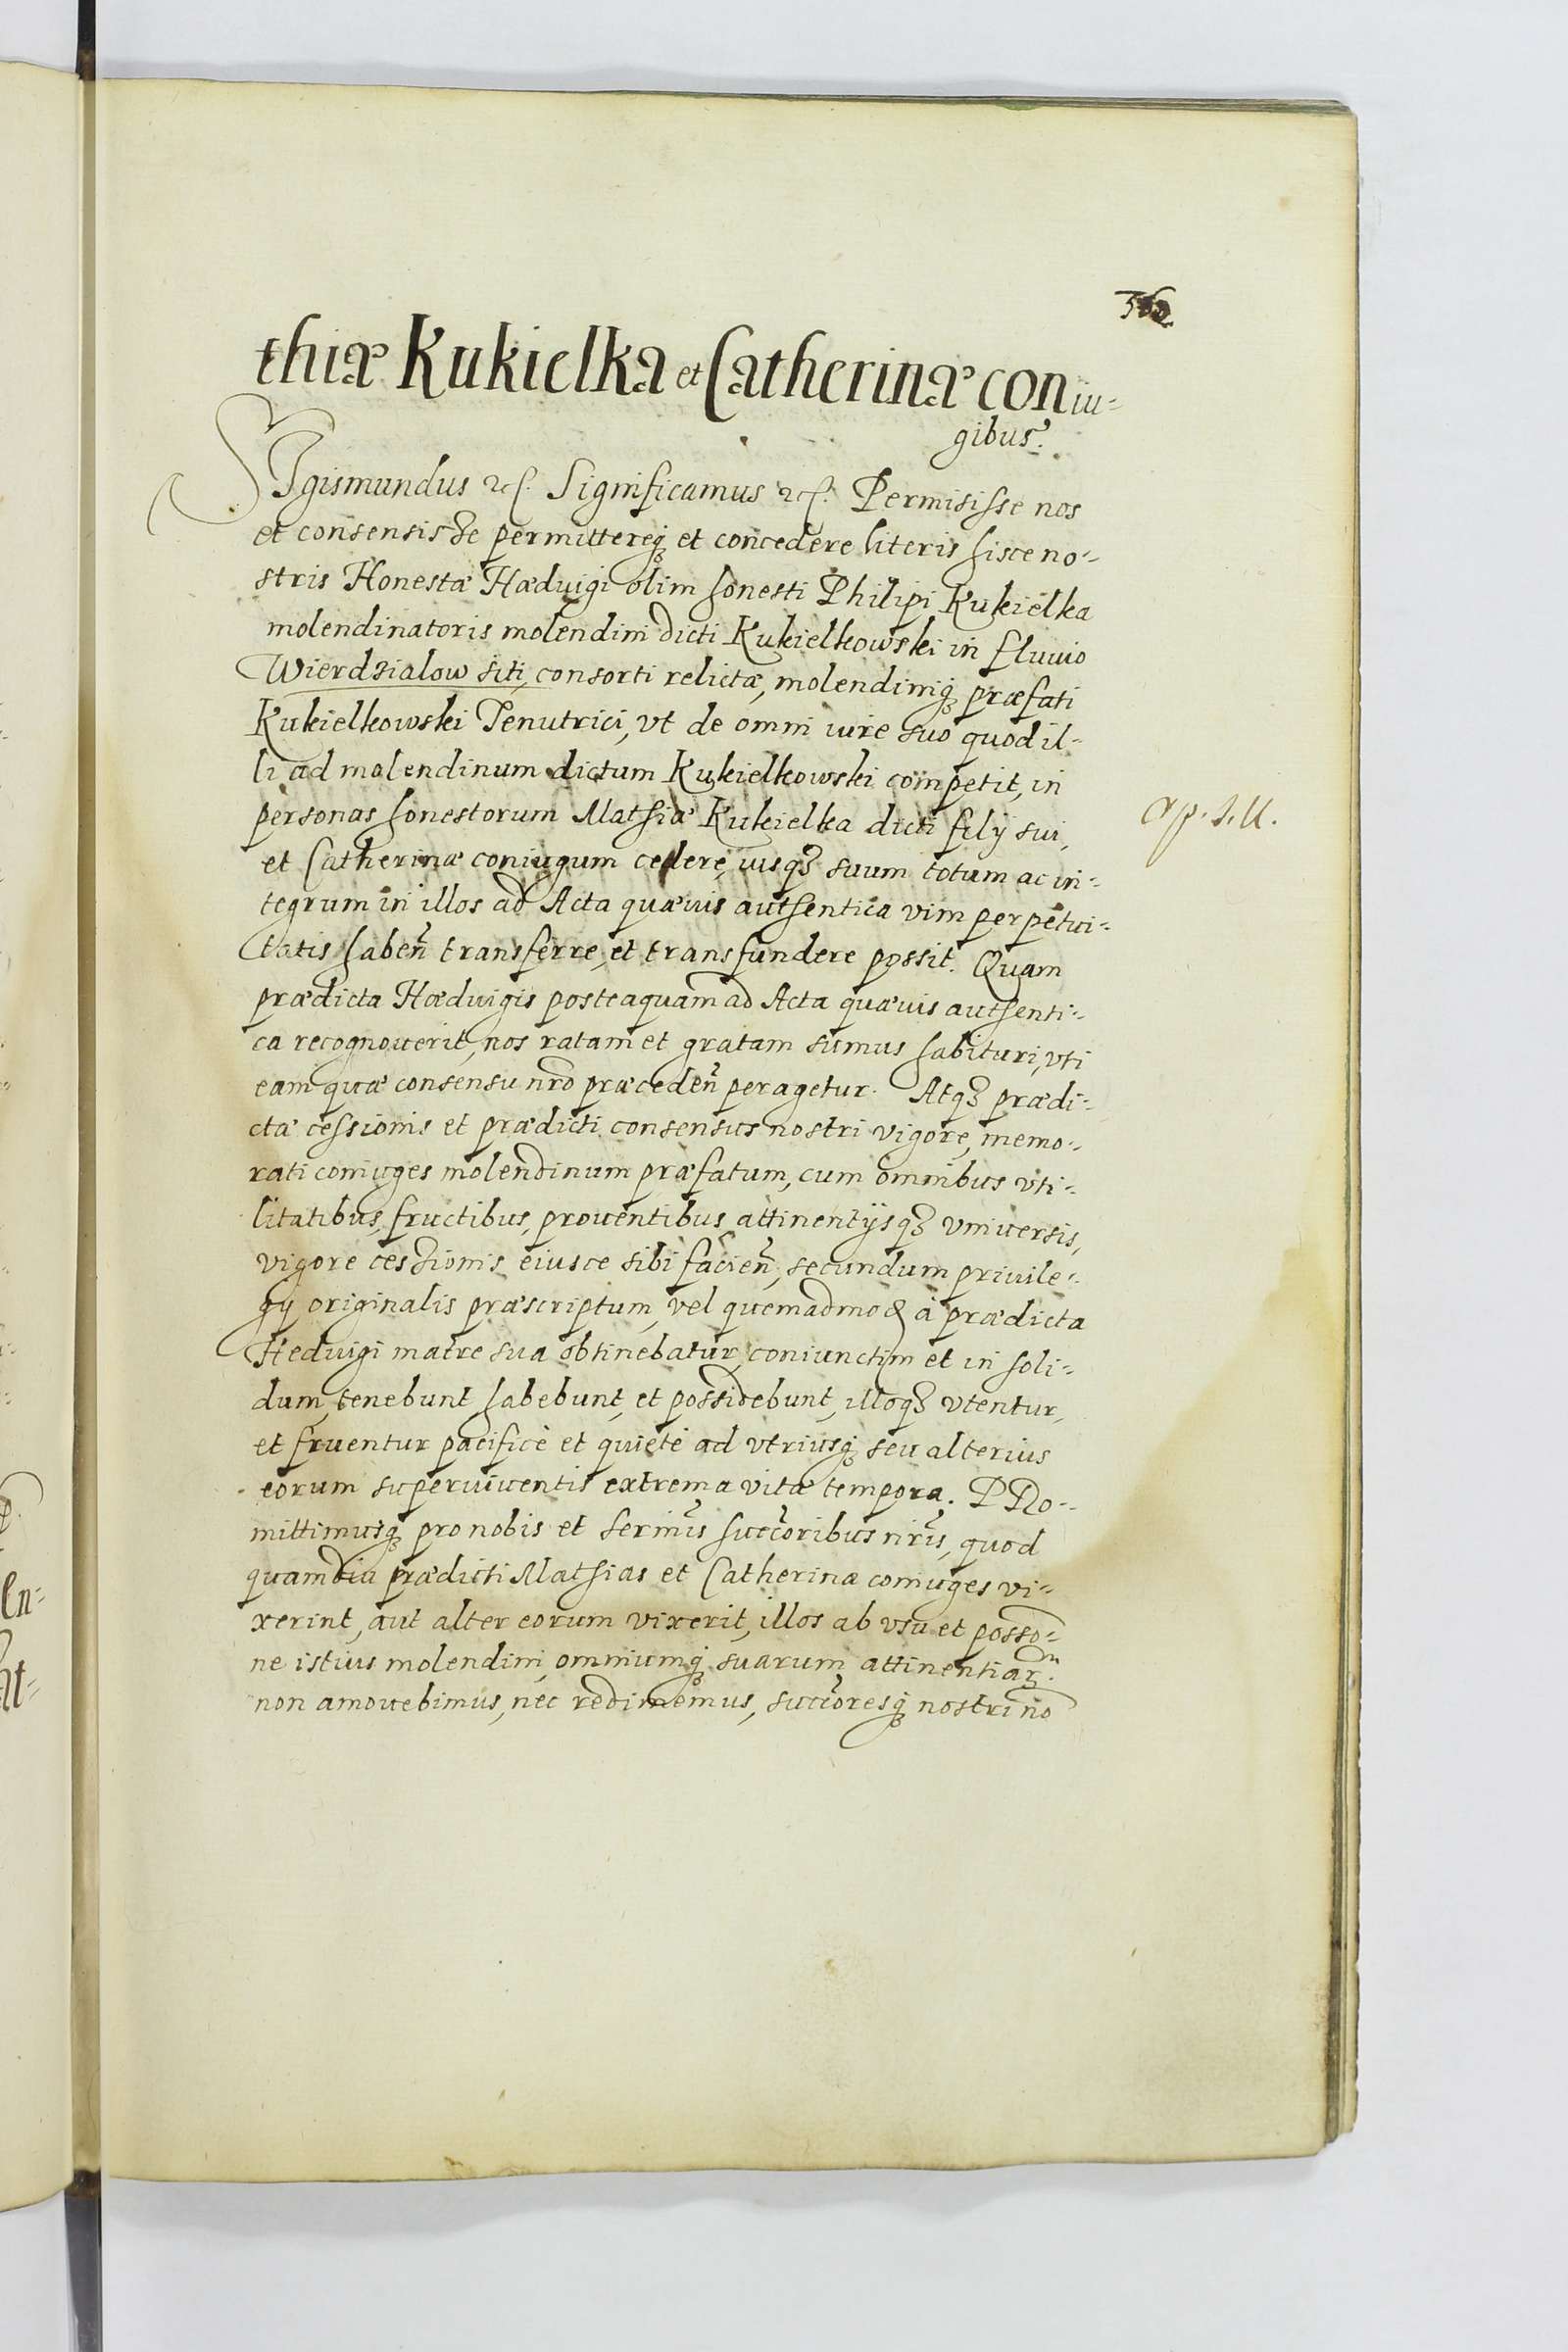 360
thiæ Kukielka et Catherinæ coniu-
gibus.
SIgismundus etc. Significamus etc. Permisisse nos
et consensisse permittereq3 et concedere literis hisce no-
stris Honestæ Hæduigi olim honesti Philipi Kukielka
molendinatoris molendini dicti Kukielkowski in fluuio
Wierdzialow siti, consorti relictæ, molendiniq3 præfati
Kukielkowski Tenutrici, vt de omni iure suo quod il-
li ad molendinum dictum Kukielkowski competit, in
personas honestorum Mathiæ Kukielka dicti filÿ sui,
et Catherinæ coniugum cedere, iusq3 suum totum ac in-
tegrum in illos ad Acta quæuis authentica vim perpetui-
tatis haben̄ transferre, et transfundere possit. Quam
prædicta Hæduigis posteaquam ad Acta quæuis authenti-
ca recognouerit, nos ratam et gratam sumus habituri, vti
eam quæ consensu nr̄o præceden̄ peragetur. Atq3 prædi-
ctæ cessionis et prædicti consensus nostri vigore, memo-
rati coniuges molendinum præfatum, cum omnibus vti-
litatibus, fructibus, prouentibus, attinentÿsq3 vniuersis,
vigore cessionis eiusce sibi facien̄, secundum priuile-
gÿ originalis præscriptum, vel quemadmod à prædicta
Heduigi matre sua obtinebatur, coniunctim et in soli-
dum, tenebunt, habebunt, et possidebunt, illoq3 vtentur,
et fruentur pacificè et quietè ad vtriusq3 seu alterius
eorum superuiuentis extrema vitæ tempora. PRo-
mittimusq3 pro nobis et Serm̄is succ̄oribus nr̄is, quod
quamdiu prædicti Mathias et Catherina coniuges vi-
xerint, aut alter eorum vixerit, illos ab vsu et posso-
ne istius molendini, omniumq3 suarum attinentiar̄
non amouebimus, nec redimemus, succ̄oresq3 nostri nō
ap. S. M.